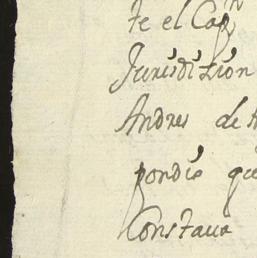 te el Capⁿ
Jurisdizion
Andres de A
pondio que
Constava